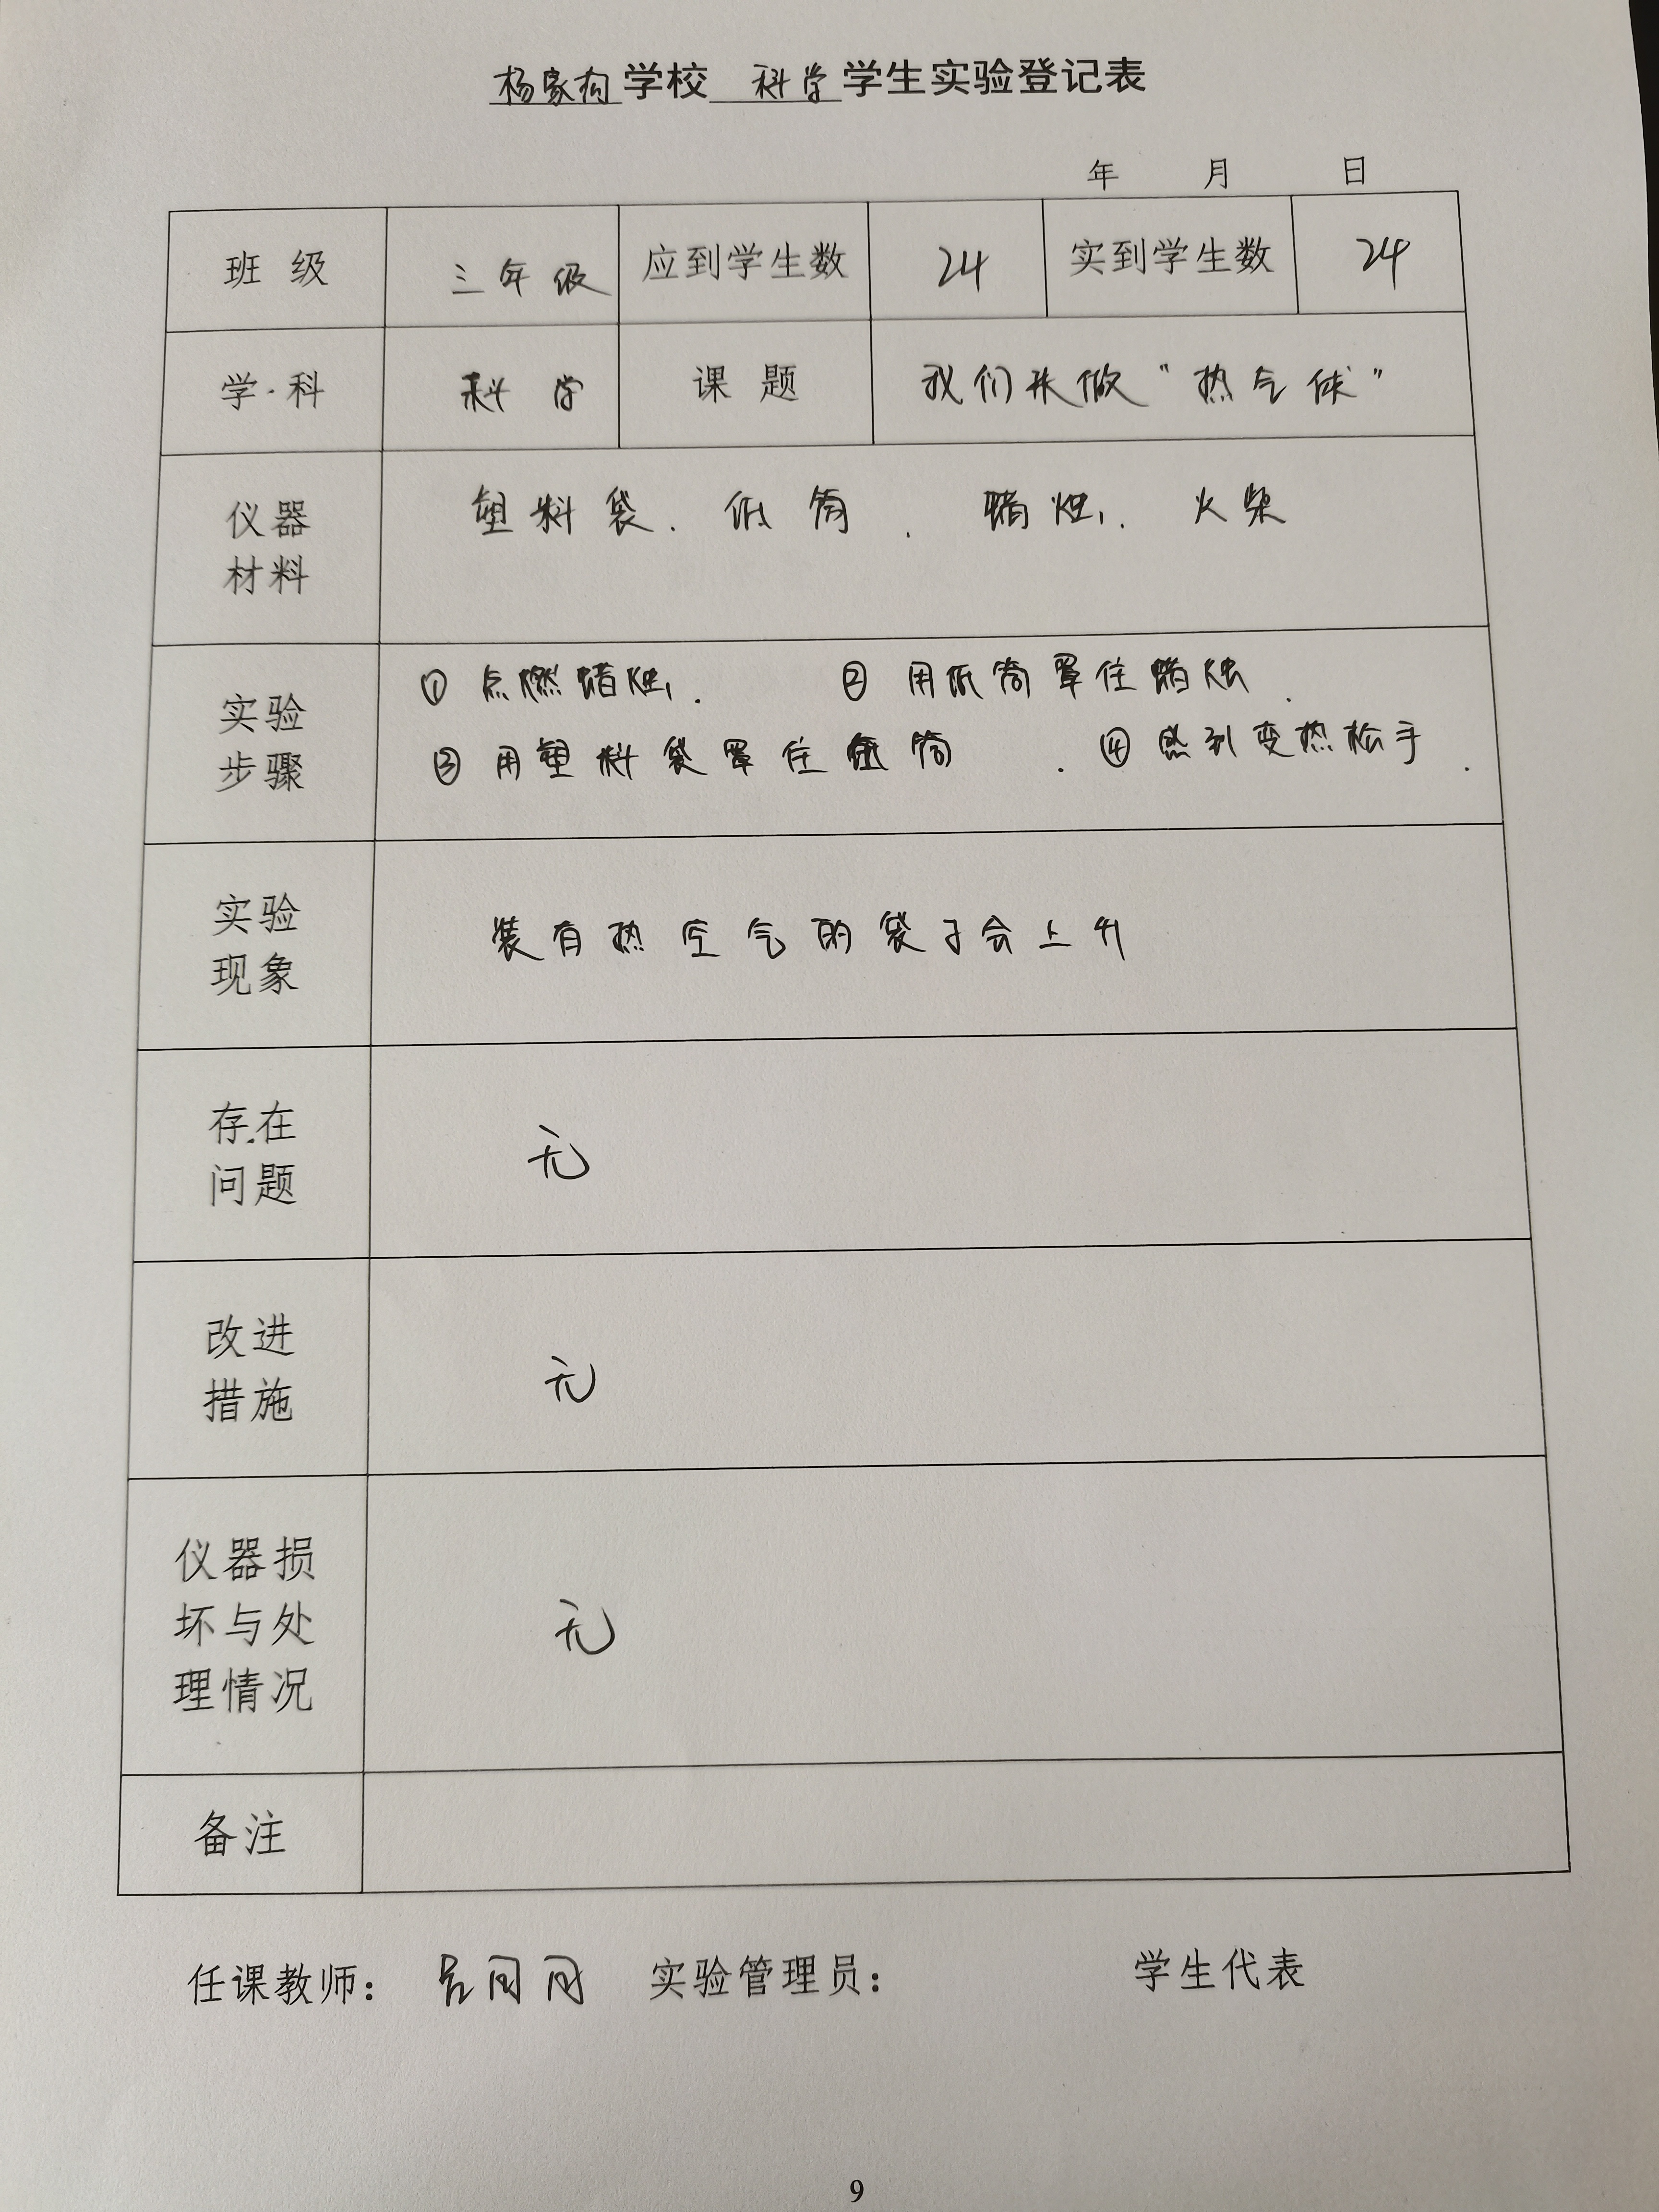 杨家沟学校 科学 学生实验登记表
年 月 日
班 级 三年级 应到学生数 24 实到学生数 24
学 科 科学 课 题 我们来做“热气球”
仪器
材料
塑料袋、纸筒、蜡烛、火柴
实验
步骤
① 点燃蜡烛. ② 用纸筒罩住蜡烛.
③ 用塑料袋罩住纸筒. ④ 感到变热松手.
实验
现象
装有热空气的袋子会上升
存在
问题
无
改进
措施
无
仪器损
坏与处
理情况
无
备注
任课教师: 实验管理员: 学生代表
9